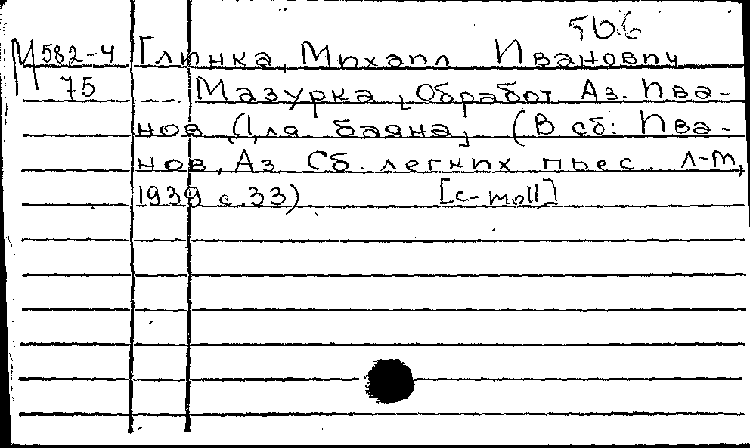 506
М582-4 Глинка, Михаил Иванович
75 Мазурка, Обработ Аз. Ива-
нов, Для баяна, (В сб: Ива-
нов, Аз. Сб. легких пьес. Л-м,
1939 с. 33) [c-moll]